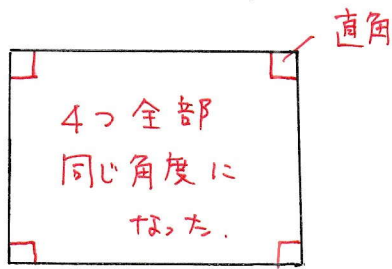 直角
4つ全部
同じ角度に
なった.